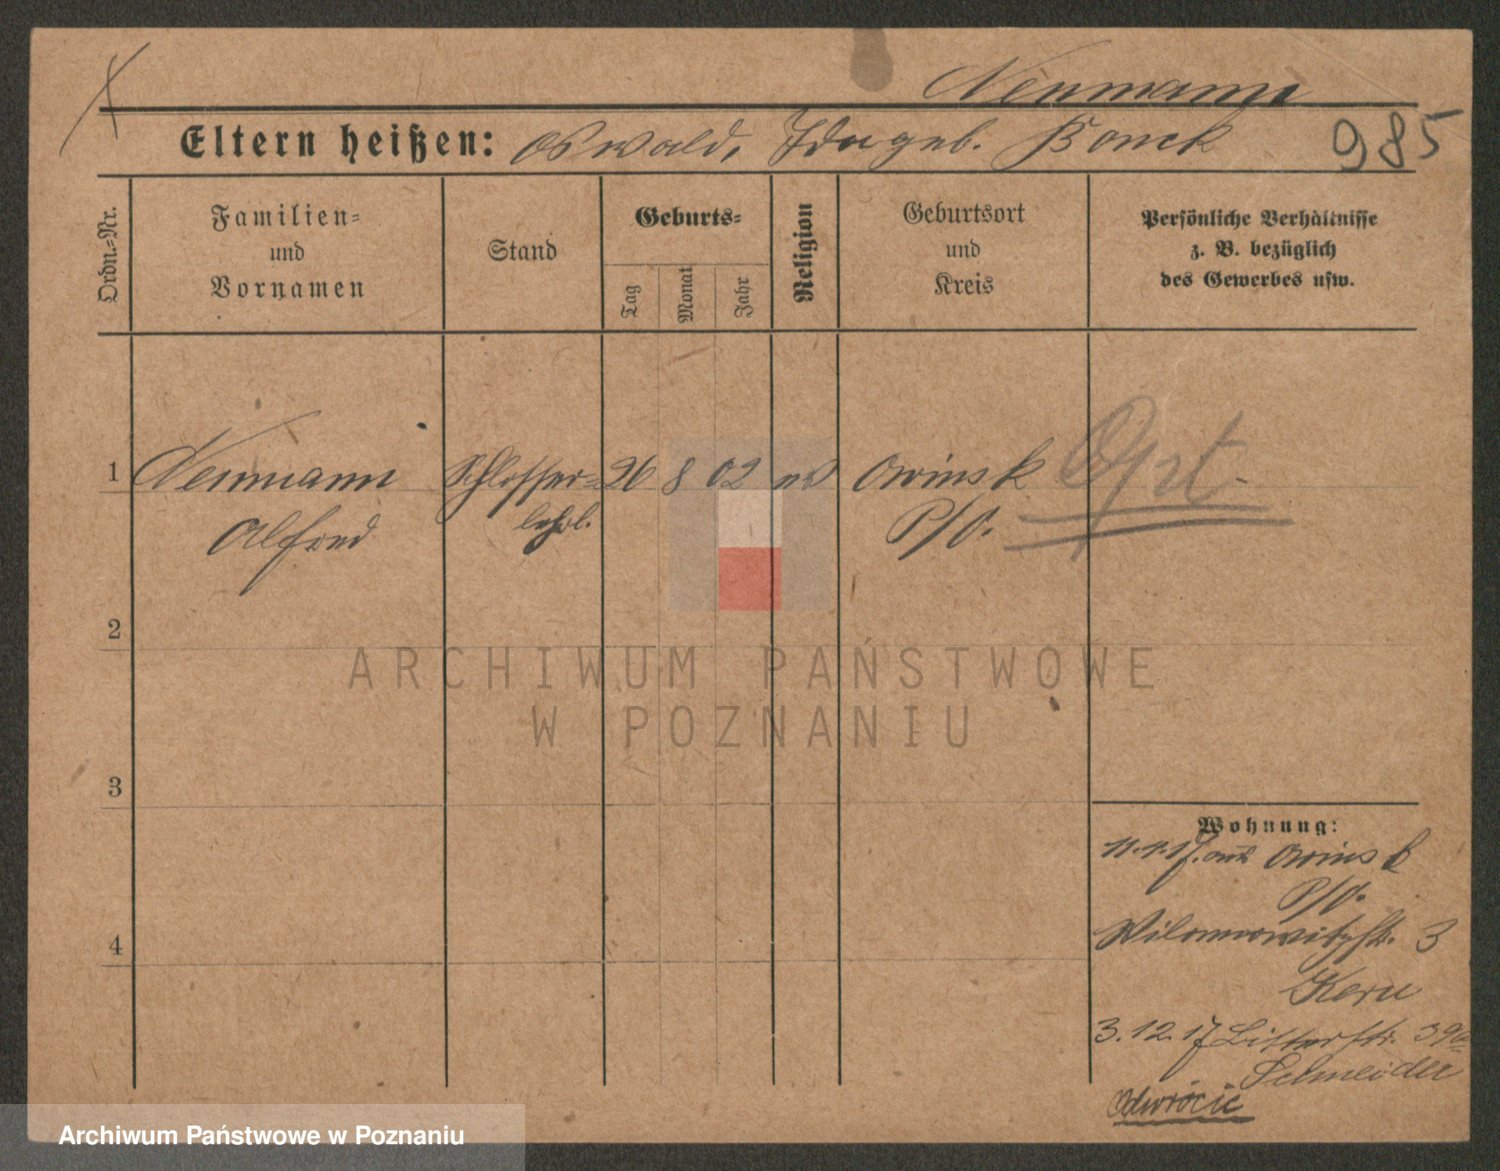 Neumann
Eltern heißen: Oswald, Ida geb. Bonck
985
Ordn.-Nr.
Familien-
und
Vornamen
Stand
Geburts-
Tag
Monat
Jahr
Religion
Geburtsort
und
Kreis
Persönliche Verhältnisse
z. B. bezüglich
des Gewerbes usw.
1 Neumann Schlosser- 26 8 02 Owinsk Opt.
Alfred lehrl. P/O.
2
ARCHIWUM PAŃSTWOWE
W POZNANIU
3
Wohnung:
11.1.17. aus Owinsk
P/O.
4
Wilamowitzstr. 3
Kern
3.12.17 Bitterstr. 39a
Schneider
Odwrócić
Archiwum Państwowe w Poznaniu